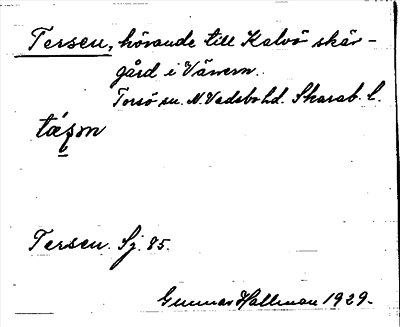 Tersen, hörande till Kalvö skär-
gård i Vänern.
Torsö sn. N. Vadsbo hd. Skarab. l.
Tersen. Sj. 85.
Gunnar Hallman 1929.